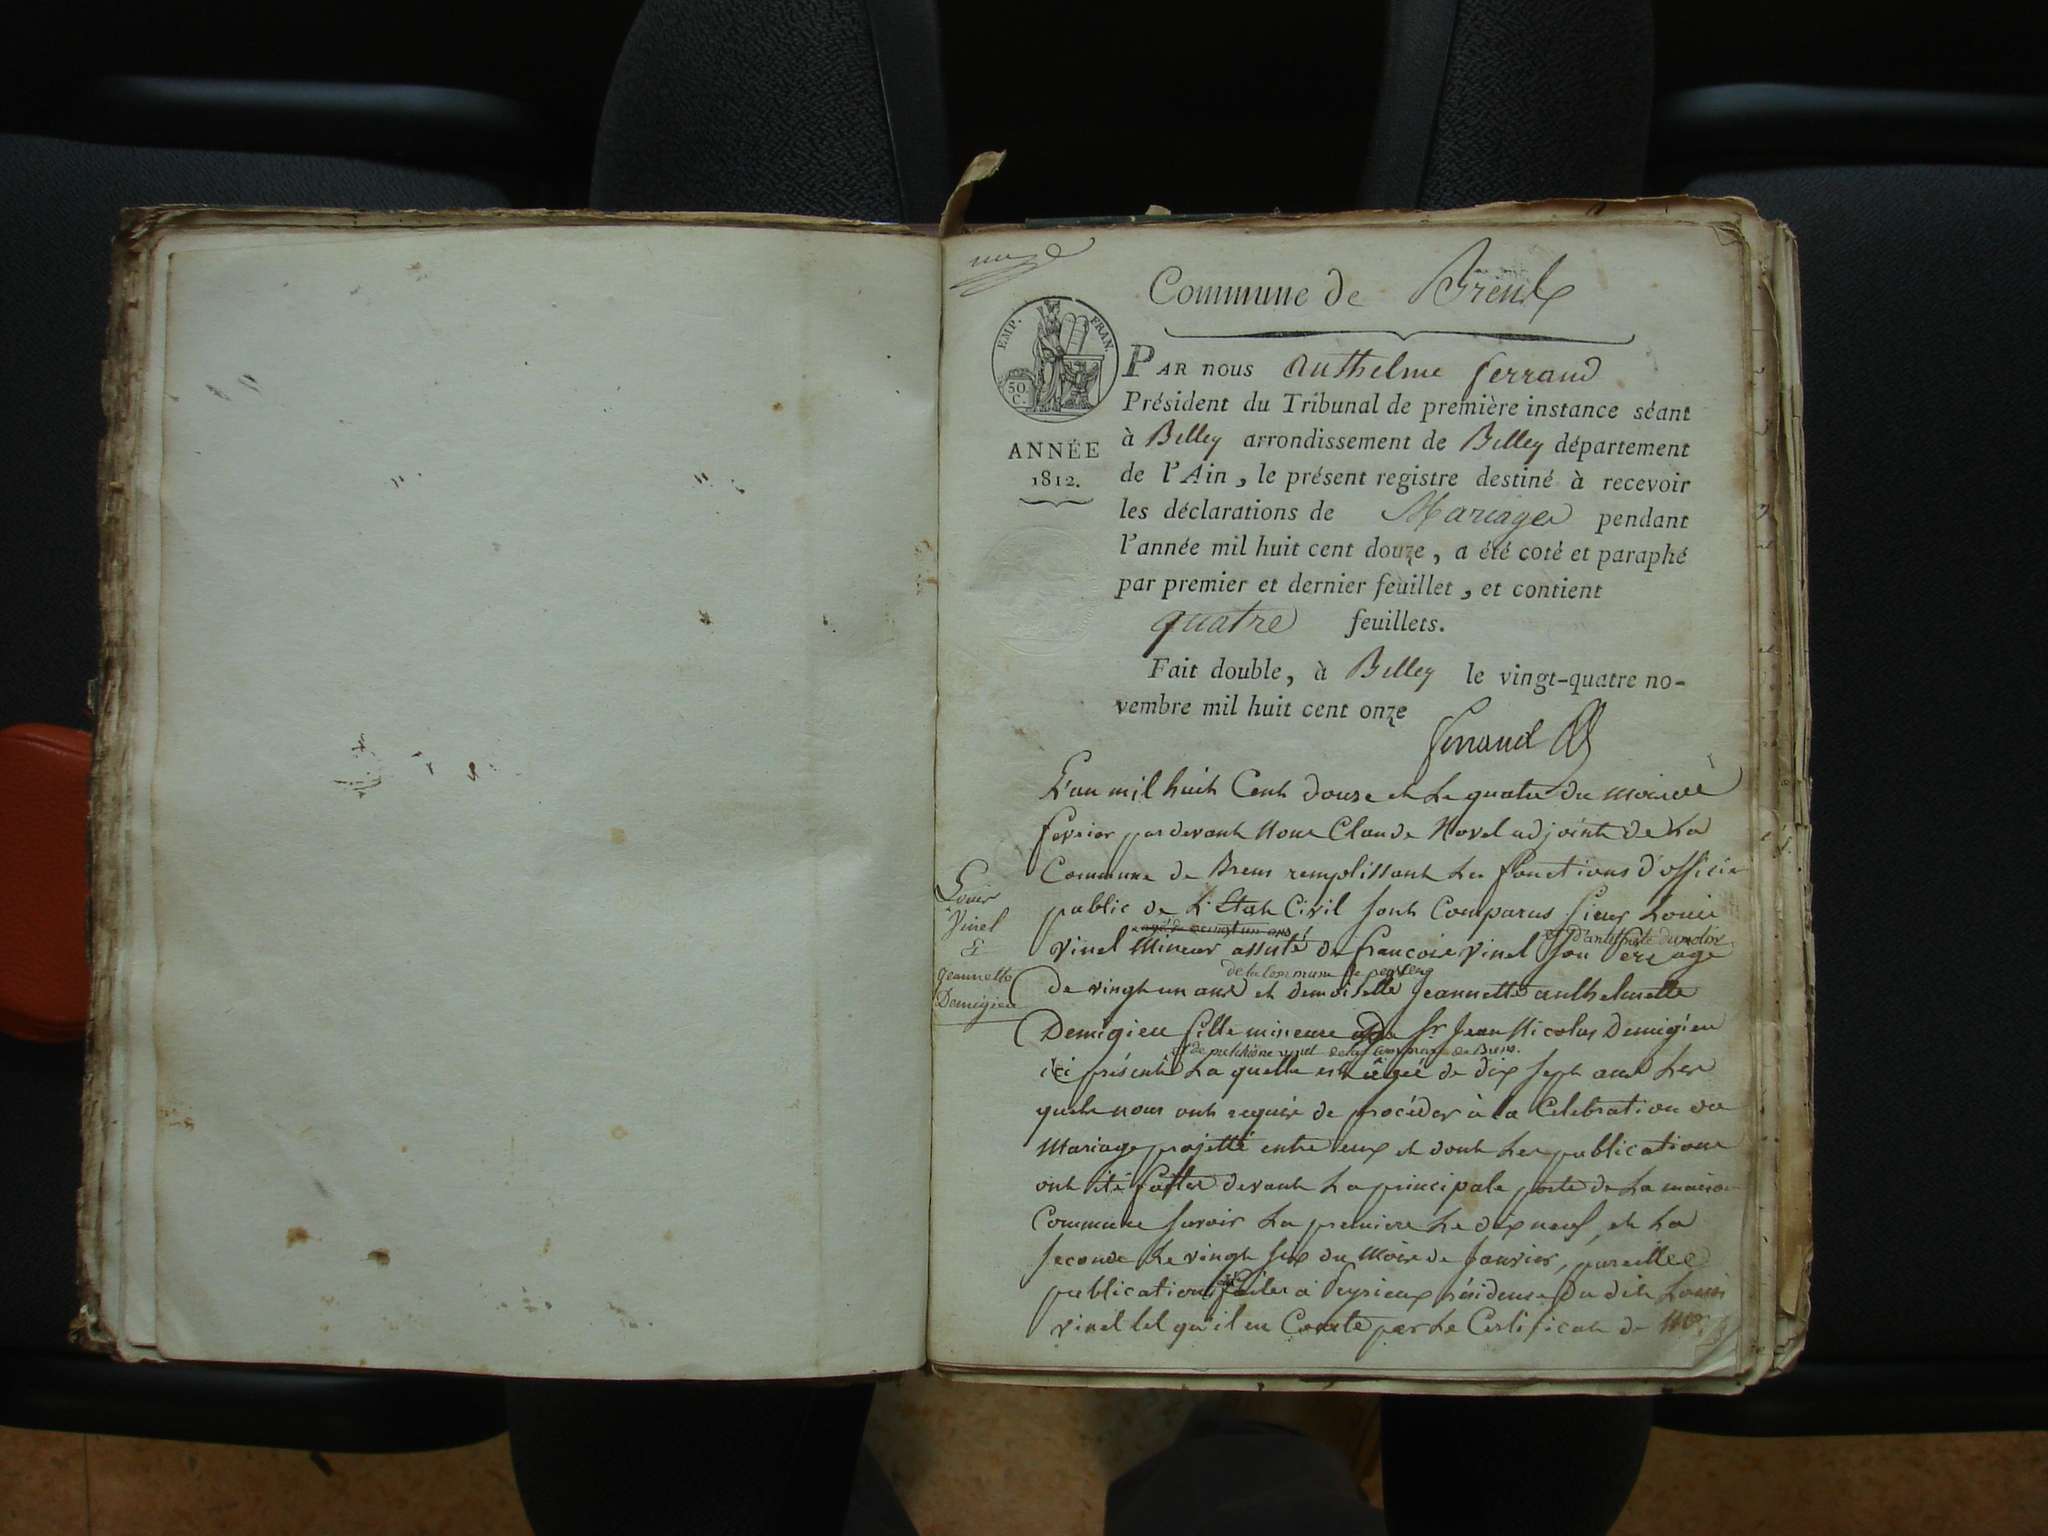 Commune de Brens
EMP. FRAN.
50
C.
ANNÉE
1812.
PAR nous Anthelme ferrand
Président du Tribunal de première instance séant
à Belley arrondissement de Belley département
de l'Ain, le présent registre destiné à recevoir
les déclarations de Mariages pendant
l'année mil huit cent douze, a été coté et paraphé
par premier et dernier feuillet, et contient
quatre feuillets.
Fait double, à Belley le vingt-quatre no-
vembre mil huit cent onze
ferrand
Louis
Vinel
&
Jeannette
Demigieu
L'an mil huit Cent douze et le quatre du mois de
fevrier par devant Nous Claude Novel adjoint de La
Commune de Brens remplissant les fonctions d'officier
public de L'Etat Civil sont Comparus sieur Louis
agé de vingt un ans
Vinel Mineur assisté de francois Vinel son Pere agé
de la Commune de peyrieu
De vingt un ans et demoiselle Jeannette anthelmette
Demigieu fille mineure de Sr. Jean Nicolas Demigieu
vinel de la commune de Brens.
ici présent La quelle est âgée de dix sept ans Les
quels nous ont requis de procéder à la Celebration du
Mariage projetté entre eux et dont Les publications
ont été faites devant La principale porte de La maison
Commune savoir La premiere Le dix neuf, et La
seconde Le vingt six du Mois de Janvier, pareilles
publications faites a Peyrieux résidence du dit Louis
vinel tel qu'il en Conste par Le Certificat de Mr.